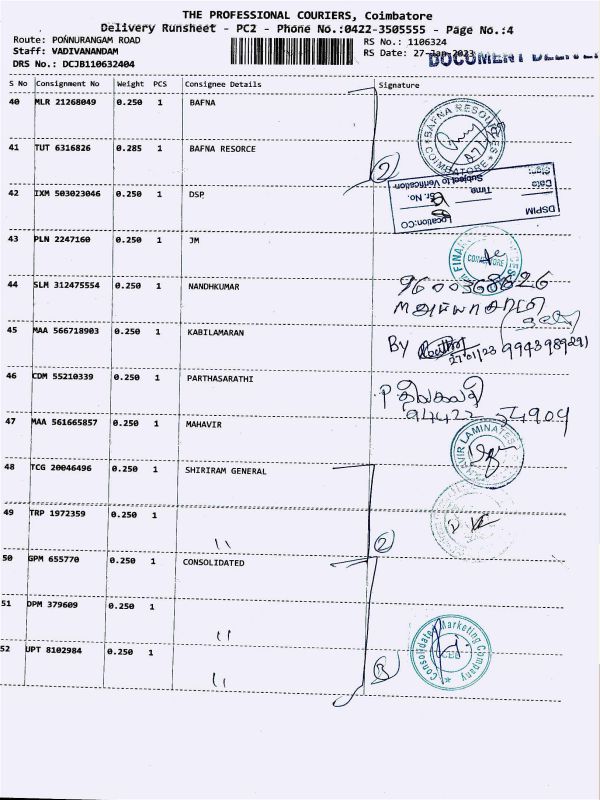 THE PROFESSIONAL COURIERS, Coimbatore
Delivery Runsheet - PC2 - Phone No.:0422-3505555 - Page No.:4
Route: PONNURANGAM ROAD
RS No.: 1106324
Staff: VADIVANANDAM
RS Date: 27-Jan-2023
DRS No.: DCJB110632404
DOCUMENT
S No Consignment No Weight PCS Consignee Details Signature
40 MLR 21268049 0.250 1 BAFNA
BAFNA RESOURCES
COIMBATORE
41 TUT 6316826 0.285 1 BAFNA RESORCE
2
42 IXM 503023046 0.250 1 DSP
DSPIM
Location:CO
Sr. No.
Time
Date
Subject to Verification
Sign:
43 PLN 2247160 0.250 1 JM
44 SLM 312475554 0.250 1 NANDHKUMAR
9600368626
45 MAA 566718903 0.250 1 KABILAMARAN
By 27/01/23 9943989291
46 CDM 55210339 0.250 1 PARTHASARATHI
94422 54909
47 MAA 561665857 0.250 1 MAHAVIR
LAMINATES
48 TCG 20046496 0.250 1 SHIRIRAM GENERAL
49 TRP 1972359 0.250 1 ''
2
50 GPM 655770 0.250 1 CONSOLIDATED
51 DPM 379609 0.250 1 ''
Consolidated Marketing Company
52 UPT 8102984 0.250 1 ''
3